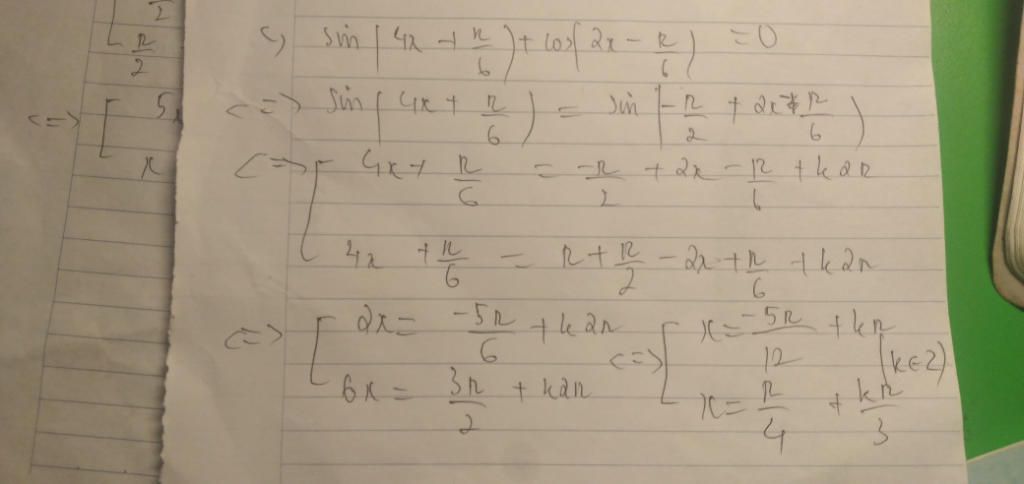 π/2
<=> [ 5
x
c) sin(4x + π/6) + cos(2x - π/6) = 0
<=> sin(4x + π/6) = sin(-π/2 + 2x - π/6)
<=> [ 4x + π/6 = -π/2 + 2x - π/6 + k2π
4x + π/6 = π + π/2 - 2x + π/6 + k2π
<=> [ 2x = -5π/6 + k2π <=> [ x = -5π/12 + kπ
6x = 3π/2 + k2π x = π/4 + kπ/3 (k∈Z)